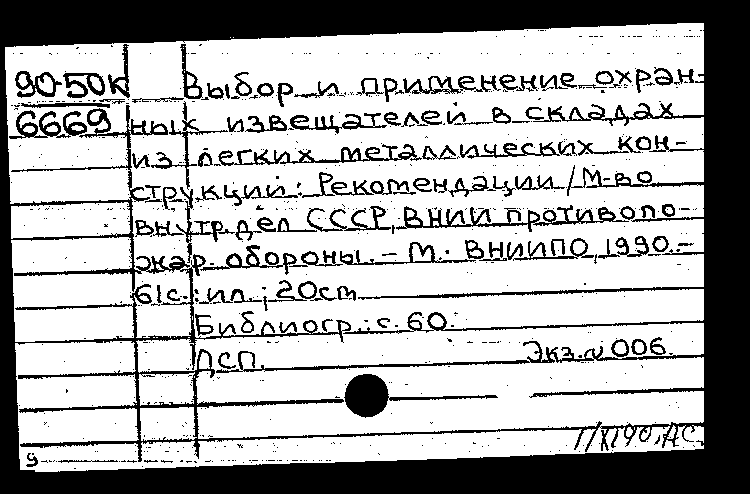 90-50к Выбор и применение охран-
6669 ных извещателей в складах
из легких металлических кон-
струкций: Рекомендации / М-во
внутр. дел СССР, ВНИИ противопо-
жар. обороны. – М.: ВНИИПО, 1990. –
61с.: ил.; 20см
Библиогр.: с. 60.
ДСП. Экз. № 006.
1/XI 90. АС.
9